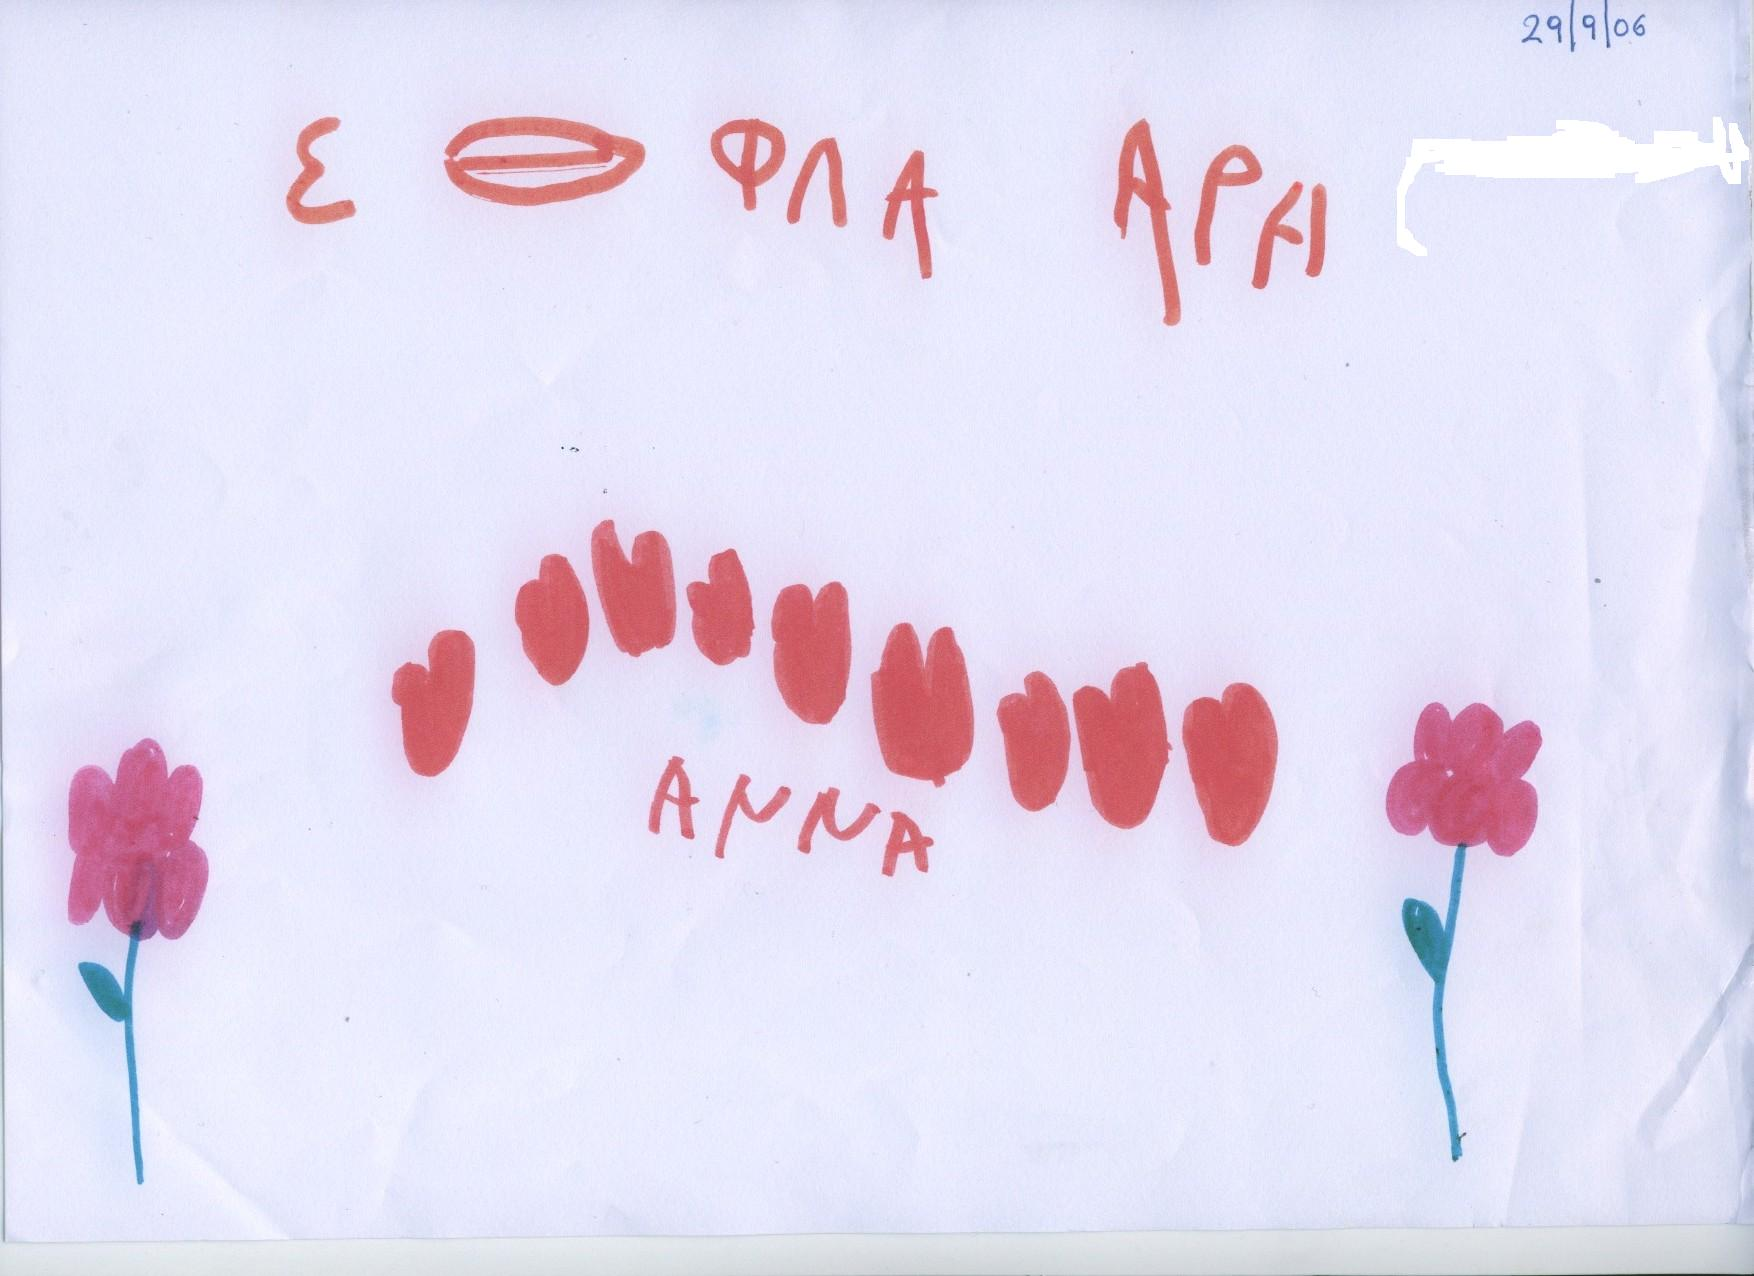 29/9/06
ΕΘΦΛΑ ΑΡΗ
ΑΝΝΑ